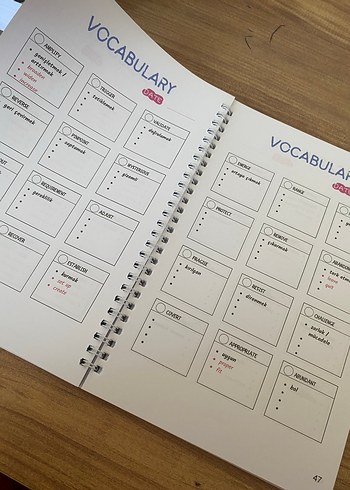 VOCABULARY
DATE
AMPLIFY
genişletmek /
arttırmak
broaden
widen
increase
TRIGGER
tetiklemek
VALIDATE
doğrulamak
REVERSE
geri çevirmek
PINPOINT
saptamak
MYSTERIOUS
gizemli
REQUIREMENT
gereklilik
ADJUST
RECOVER
ESTABLISH
kurmak
set up
create
VOCABULAR
DATE
EMERGE
ortaya çıkmak
RANGE
PROTECT
REMOVE
çıkarmak
ABANDON
terk etm
leave
quit
FRAGILE
kırılgan
RESIST
direnmek
CHALLENGE
zorluk /
mücadele
COVERT
APPROPRIATE
uygun
proper
fit
ABUNDANT
bol
47